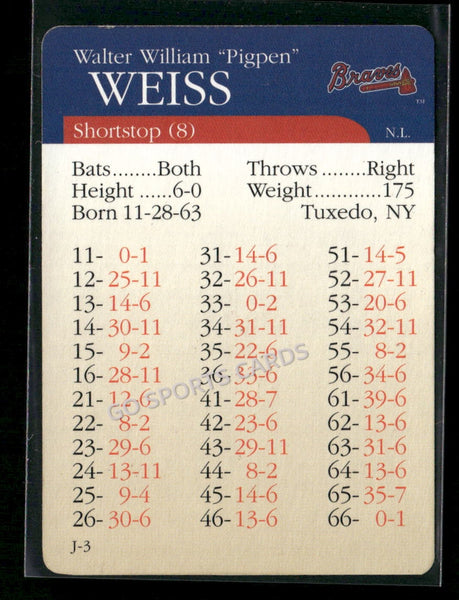 Walter William “Pigpen”
WEISS
Braves
TM
Shortstop (8) N.L.
Bats........Both Throws ........Right
Height ......6-0 Weight............175
Born 11-28-63 Tuxedo, NY
11- 0-1 31-14-6 51-14-5
12-25-11 32-26-11 52-27-11
13-14-6 33- 0-2 53-20-6
14-30-11 34-31-11 54-32-11
15- 9-2 35-22-6 55- 8-2
16-28-11 36-33-6 56-34-6
21-12-6 41-28-7 61-13-6
22- 8-2 42-23-6 62-13-6
23-29-6 43-29-11 63-31-6
24-13-11 44- 8-2 64-13-6
25- 9-4 45-14-6 65-35-7
26-30-6 46-13-6 66- 0-1
J-3
GO SPORTS CARDS